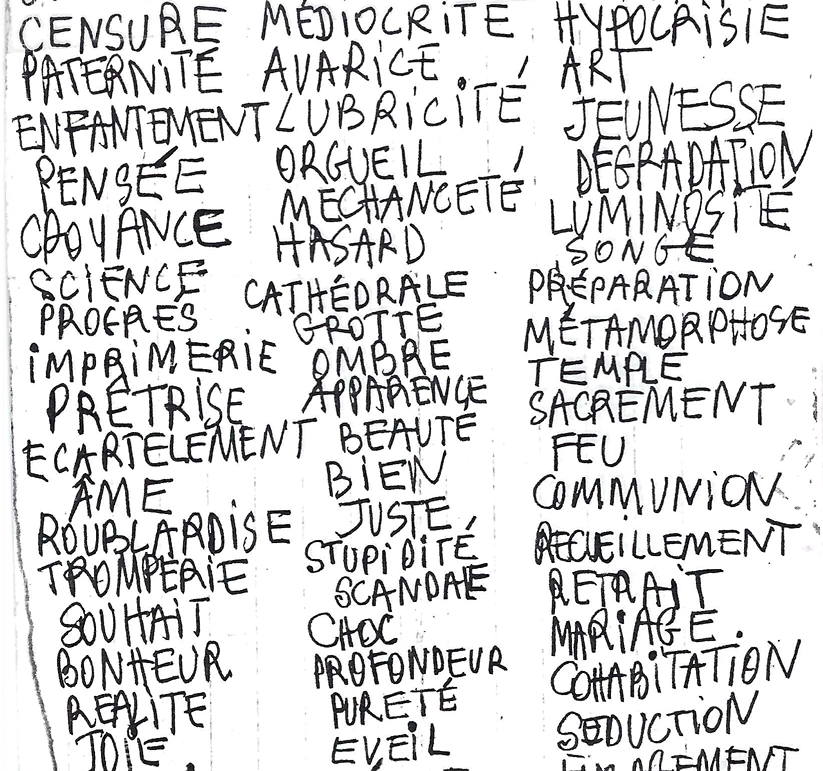 CENSURE
PATERNITÉ
ENFANTEMENT
PENSÉE
CROYANCE
SCIENCE
PROGRÈS
iMPRiMERiE
PRÊTRiSE
ECARTELEMENT
ÂME
ROUBLARDiSE
TROMPERiE
SOUHAiT
BONHEUR
REALiTE
JOiE
MÉDiOCRiTE
AVARiCE
LUBRiCiTÉ
ORGUEIL
MECHANCETÉ
HASARD
CATHÉDRALE
GROTTE
OMBRE
APPARENCE
BEAUTÉ
BIEN
JUSTE
STUPiDiTÉ
SCANDALE
CHOC
PROFONDEUR
PURETÉ
EVEiL
HYPOCRiSiE
ART
JEUNESSE
DÉGRADATiON
LUMINOSiTÉ
SONGE
PRÉPARATiON
MÉTAMORPHOSE
TEMPLE
SACREMENT
FEU
COMMUNiON
RECUEiLLEMENT
RETRAiT
MARiAGE.
COHABiTATiON
SEDUCTiON